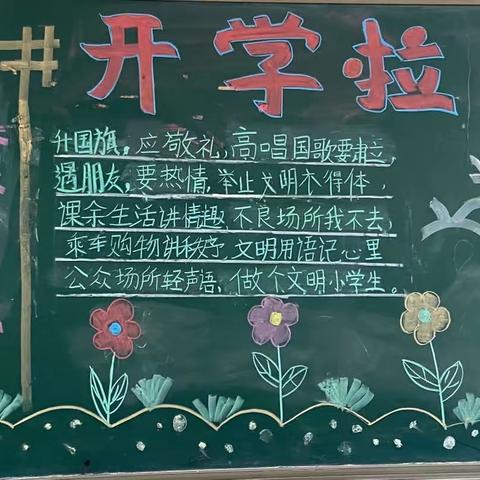 开学啦
升国旗，应敬礼，高唱国歌要肃立，
遇朋友，要热情，举止文明衣得体，
课余生活讲情趣，不良场所我不去，
乘车购物讲秩序，文明用语记心里
公众场所轻声语，做个文明小学生。